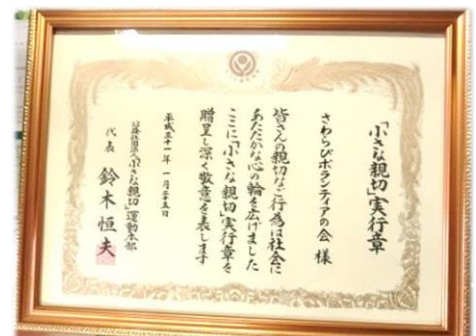 「小さな親切」実行章
さわらびボランティアの会 様
皆さんの親切なご行為は社会に
あたたかな心の輪を広げました
ここに「小さな親切」実行章を
贈呈し深く敬意を表します
平成三十一年 一月二十五日
公益社団法人「小さな親切」運動本部
代表 鈴木恒夫